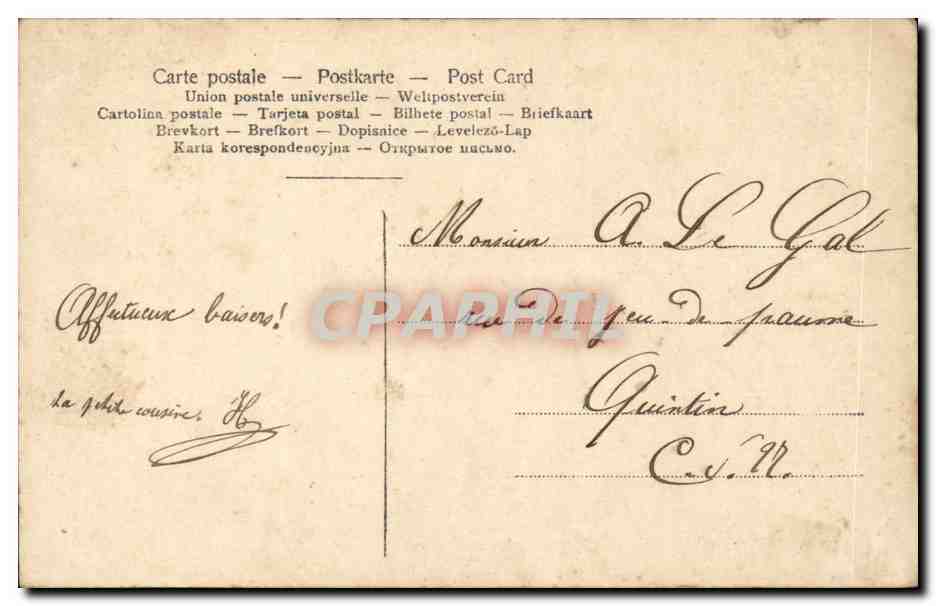 Carte postale — Postkarte — Post Card
Union postale universelle — Weltpostverein
Cartolina postale — Tarjeta postal — Bilhete postal — Briefkaart
Brevkort — Brefkort — Dopisnice — Levelező-Lap
Karta korespondencyjna — Открытое письмо.
Affectueux baisers!
La petite cousine. H
Monsieur A. Le Gal
rue du jeu de paume
Quintin
C. d. N.
CPARPHIL